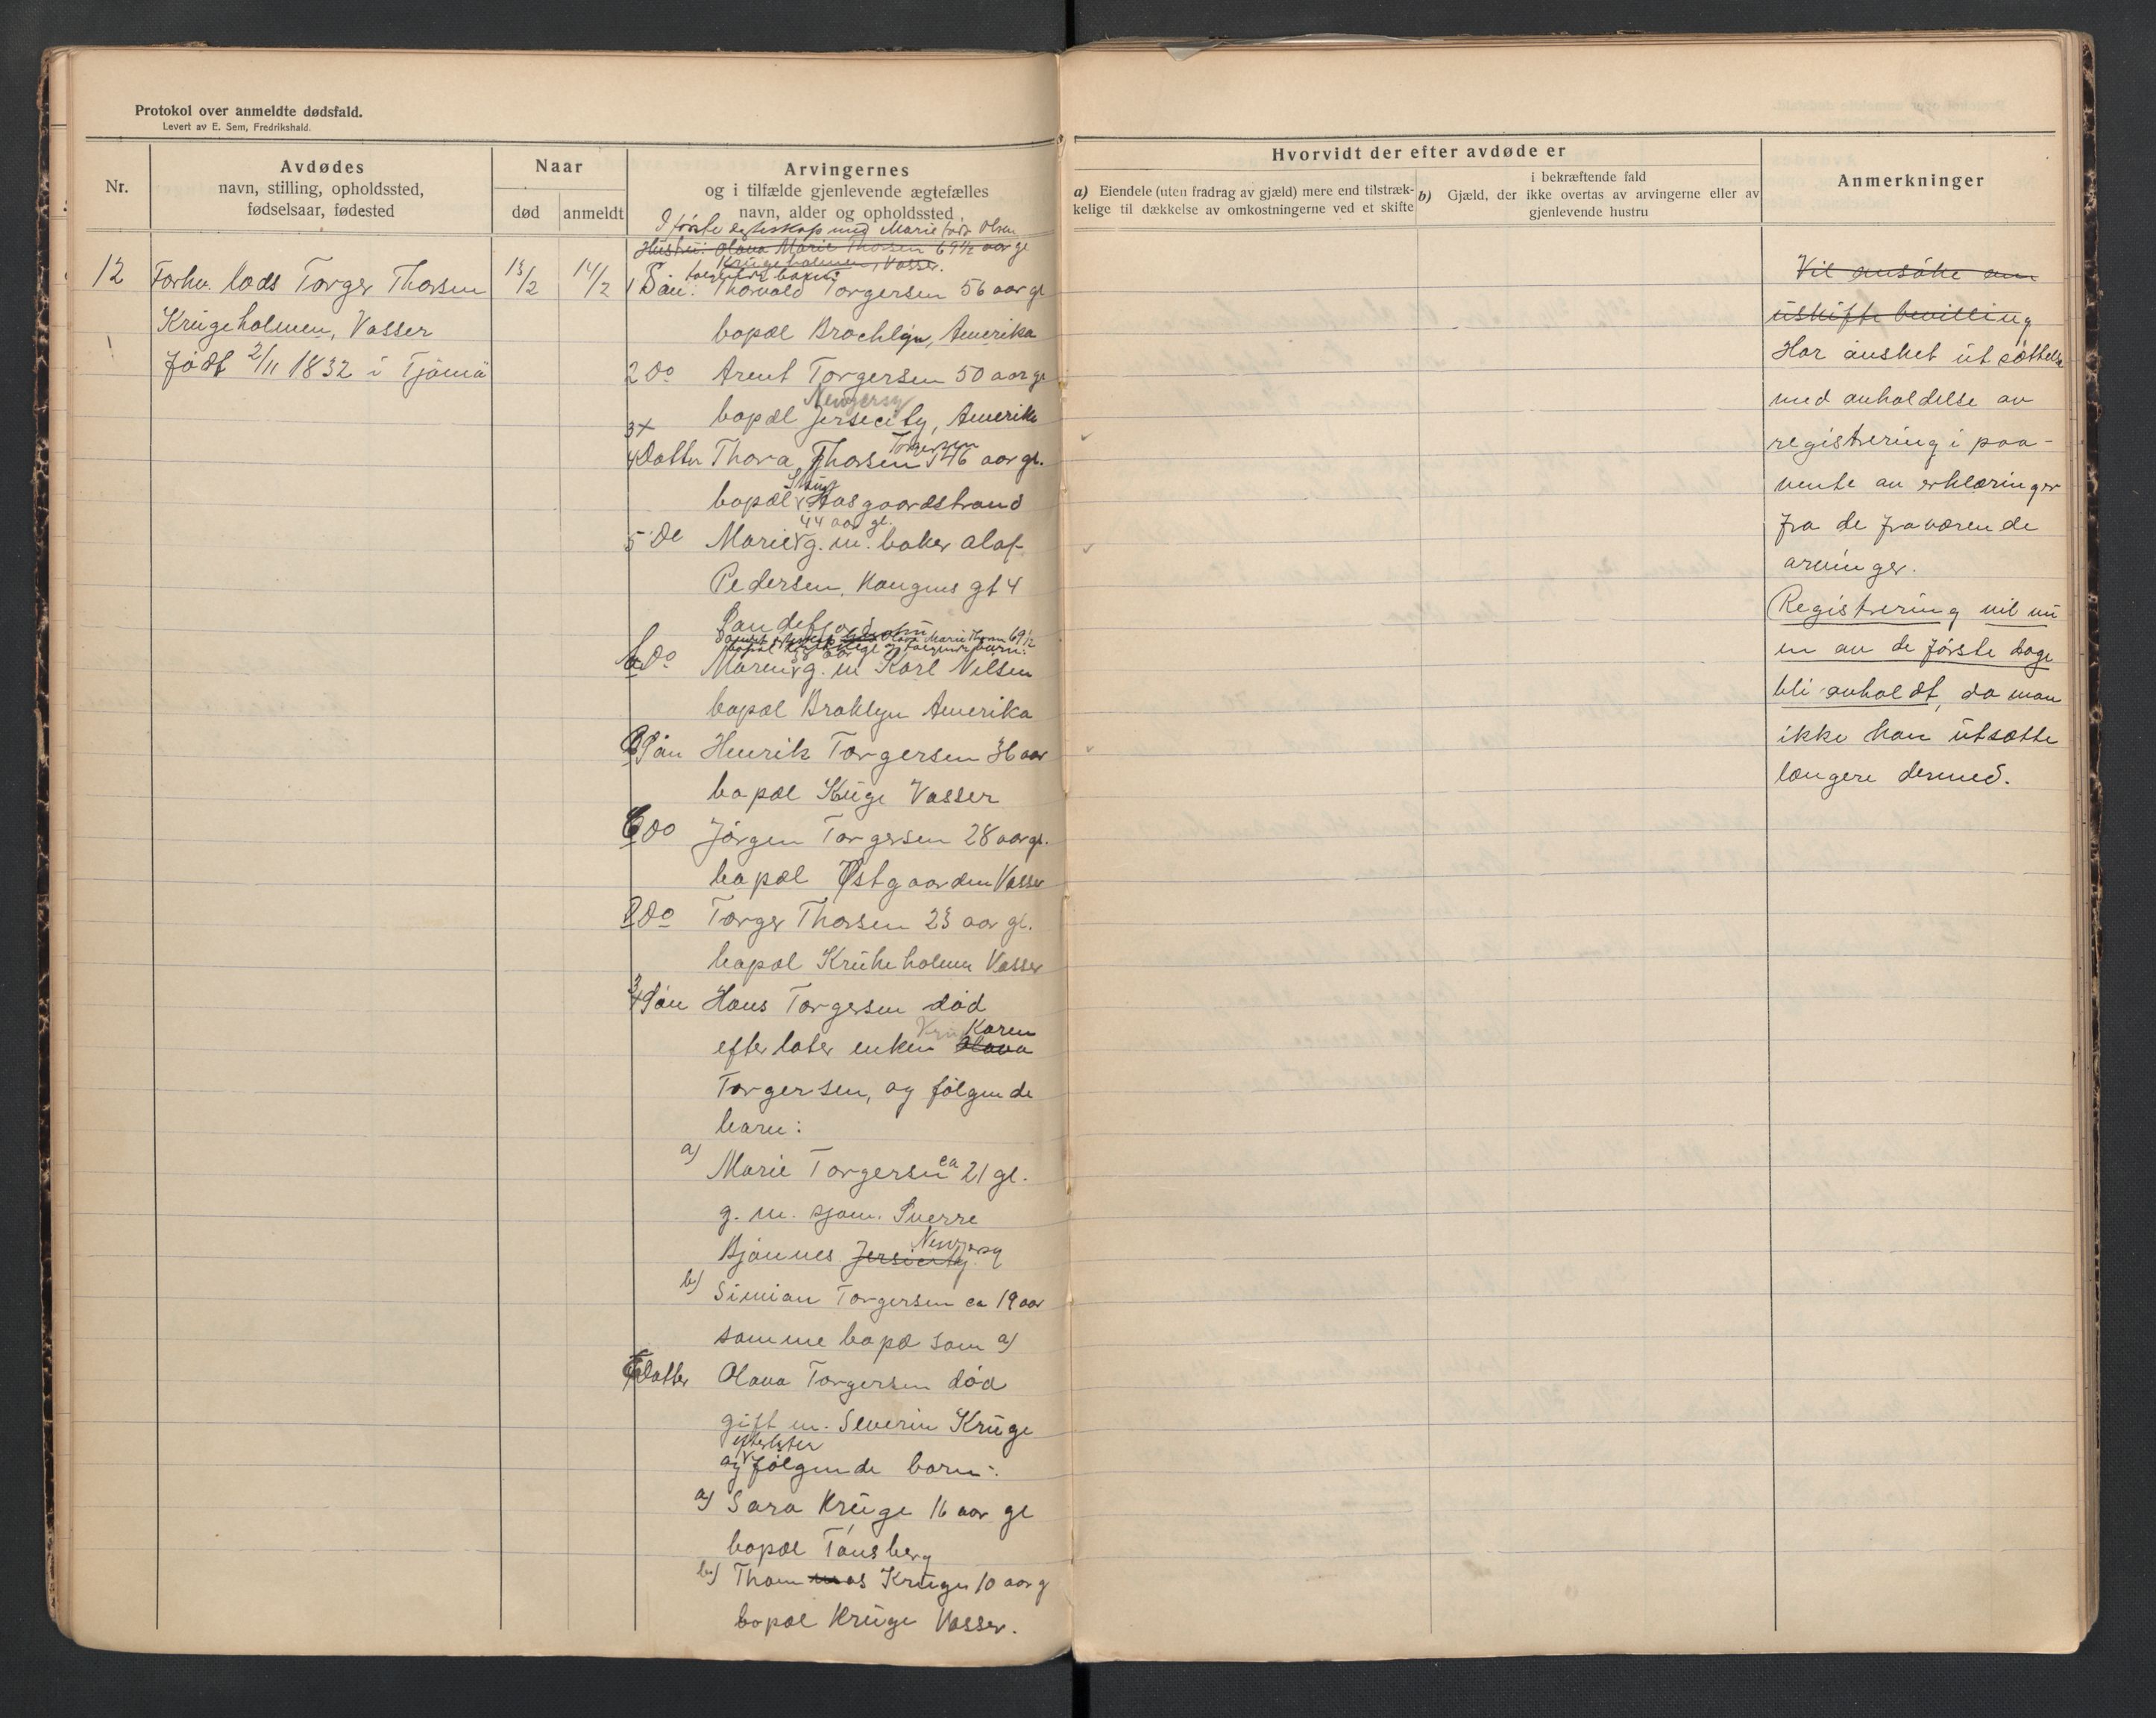 Protokol over anmeldte dødsfald.
Levert av E. Sem, Fredrikshald.
Nr.
Avdødes
navn, stilling, opholdssted,
fødselsaar, fødested
Naar
død
anmeldt
Arvingernes
og i tilfælde gjenlevende ægtefælles
navn, alder og opholdssted
Hvorvidt der efter avdøde er
a) Eiendele (uten fradrag av gjæld) mere end tilstræk-
kelige til dækkelse av omkostningerne ved et skifte
i bekræftende fald
b) Gjæld, der ikke overtas av arvingerne eller av
gjenlevende hustru
Anmerkninger
12
Forhv. lods Torger Thorsen
Krugeholmen, Vasser
født 2/11 1832 i Tjømö
13/2
14/2
I første egteskap med Marie født Olsen
Hustru: Olava Marie Thorsen 69½ aar gl
Krugeholmen, Vasser.
følgende barn:
1 Sön: Thorvald Torgersen 56 aar gl
bopæl Brochlyn, Amerika
2 Do Arent Torgersen 50 aar gl
Newjersy
bopæl Jersecity, Amerika
3+
4 Datter Thora Thorsen Torgersen 46 aar gl.
bopæl Aasgaardstrand
44 aar gl.
5 Do Marie g. m. baker Olaf
Pedersen, Kongens gt 4
Sandefjord
Olava Marie Thorsen 69½
følgende barn:
Do Maren g. m Karl Nilsen
bopæl Broklyn Amerika
Sön Henrik Torgersen 36 aar
bopæl Krüge Vasser
Do Jörgen Torgersen 28 aar gl.
bopæl Østgaarden Vasser
Do Torger Thorsen 23 aar gl.
bopæl Krukeholmen Vasser
3+ Sön Hans Torgersen död
Karen
efterlater enken Olava
Torgersen, og følgende
barn:
a) Marie Torgersen ca 21 gl.
g. m. sjøm. Sverre
Bjönnes Jersicity Newjersy
b) Simian Torgersen ca 19 aar
samme bopæ som a)
Datter Olava Torgersen död
gift m. Severin Krüge
efterlater
og følgende barn:
a) Sara Krüge 16 aar gl
bopæl Tönsberg
b) Thommas Krüge 10 aar g
bopæl Krüge Vasser.
Vil ansöke om
uskifte bevilling
Har önsket utsættelse
med avholdelse av
registrering i paa-
vente av erklæringer
fra de fraværende
arvinger.
Registrering vil nu
en av de første dage
bli avholdt, da man
ikke kan utsætte
længere dermed.